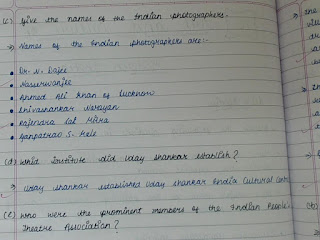 (c) Give the names of the Indian photographers.
⇒ Names of the Indian photographers are:-
• Dr. N. Dajee
• Nasserwanjee
• Ahmed Ali Khan of Lucknow
• Shivashanker Narayan
• Rajendra Lal Mitra
• Ganpatrao S. Kale
(d) Which institute did Uday Shankar establish?
⇒ Uday Shankar established Uday Shankar India Cultural Cent
(e) Who were the prominent members of the Indian People
Theatre Association?